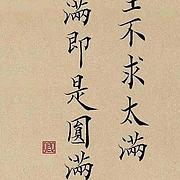 生不求太滿
滿即是圓滿